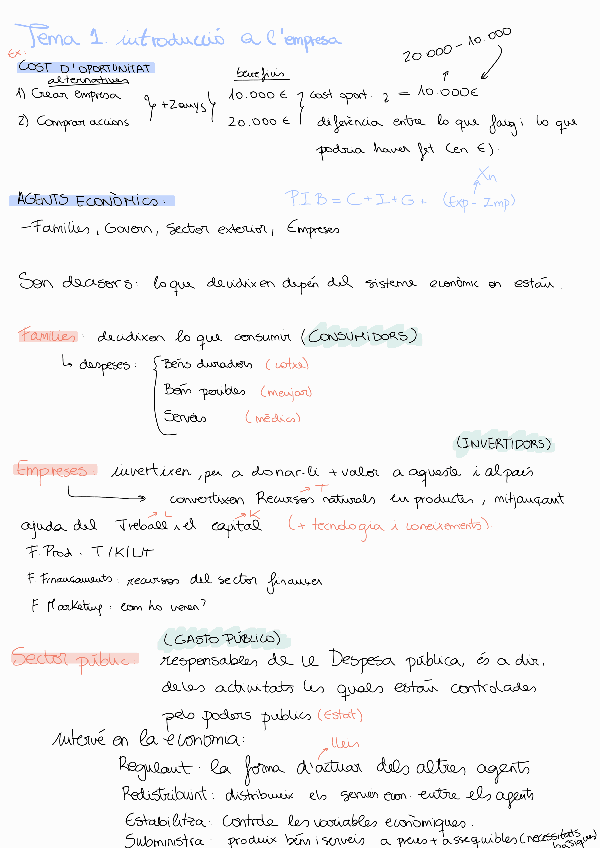 Tema 1. introducció a l'empresa
Ex:
COST D'OPORTUNITAT
20.000 - 10.000
alternatives
beneficis
1) Crear empresa
10.000 €
cost oport.
= 10.000€
2) Comprar accions
20.000 €
diferència entre lo que faig i lo que
podria haver fet (en €).
AGENTS ECONÒMICS.
Xn
PIB = C + I + G + (Exp - Imp)
- Famílies, Govern, Sector exterior, Empreses
Son decisors: lo que decidixen depén del sistema econòmic on estàn.
Famílies: decidixen lo que consumir (CONSUMIDORS)
↳ despeses:
Bens duradors (cotxe)
Bens peribles (menjar)
Serveis (mèdics)
(INVERTIDORS)
Empreses invertixen, per a donar-li + valor a aquests i al país
→ convertixen Recursos naturals en productes, mitjançant
T
ajuda del Treball i el capital (+ tecnologia i coneixements).
L
K
F. Prod: T/K/L/T
F Finançaments: recursos del sector financer
F Marketing: com ho venen?
(GASTO PÚBLICO)
Sector públic: responsables de la Despesa pública, és a dir,
de les activitats les quals estàn controlades
pels poders publics (Estat)
Intervé en la economia:
lleis
Regulant: la forma d'actuar dels altres agents
Redistribuint: distribueix els serveis econ. entre els agents
Estabilitza: Controla les variables econòmiques.
Subministra: produix béns i serveis a preus + assequibles (necessitats
bàsiques)